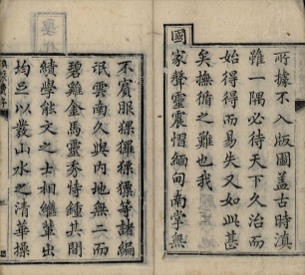 所據不入版圖蓋古時滇
雖一隅必待天下久治而
始得得而易失又如此甚
矣撫循之難也我
國
家聲靈震慴緬甸南掌無
不賓服猓玀猓猓等諸編
氓雲南久與內地無二而
碧雞金馬靈秀恃鍾其間
績學能文之士相繼輩出
均足以發山水之清華操